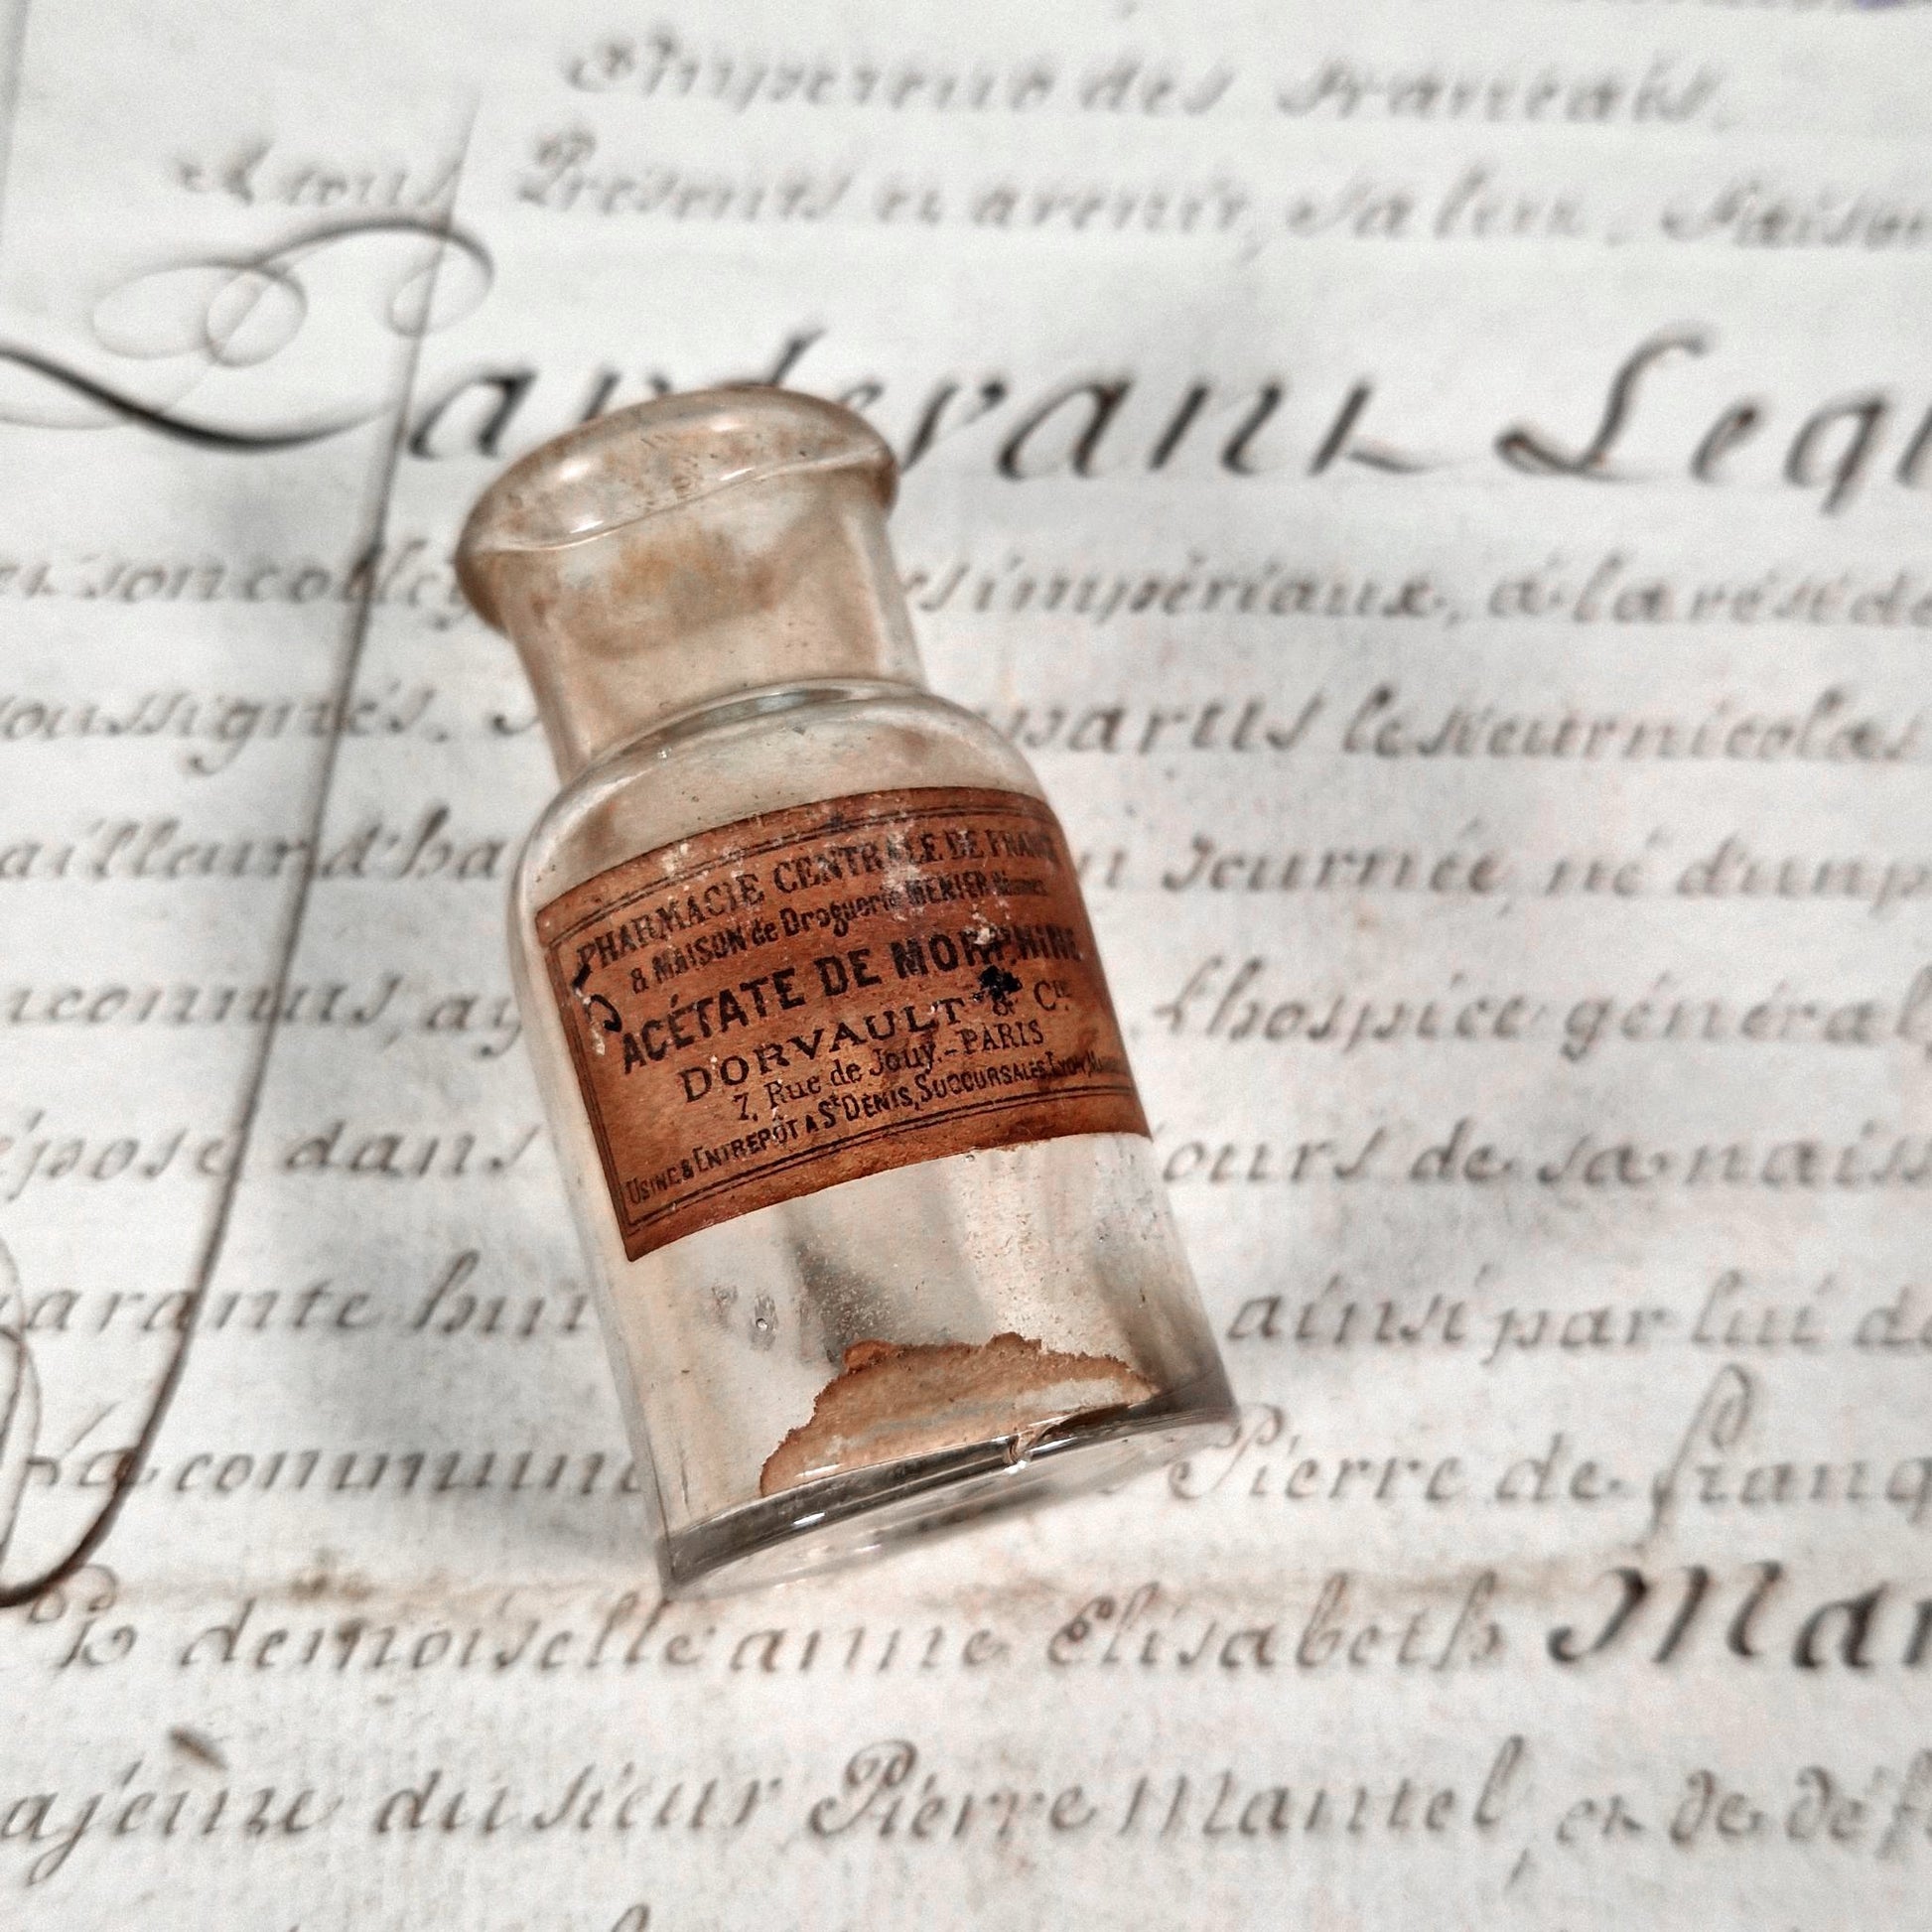 Empereur des Français.
à tous Présents et avenir, Salut. Faison
Pardevant Leq
et son collè es impériaux, à la rési de
soussignés. parus le sieur nicolas
tailleur d'ha Journée, né d'un p
inconnus, ay L'hospice général
épose dans ours de sa naiss
quarante hui ainsi par lui d
La commune Pierre de franq
demoiselle anne Elisabeth Man
majeure du sieur Pierre Mantel, et de déf
PHARMACIE CENTRALE DE FRANCE
& MAISON de Droguerie MENIER Réunies
ACÉTATE DE MORPHINE
DORVAULT & Cie
7, Rue de Jouy.-PARIS
USINE & ENTREPÔT A St DENIS, SUCCURSALES LYON,